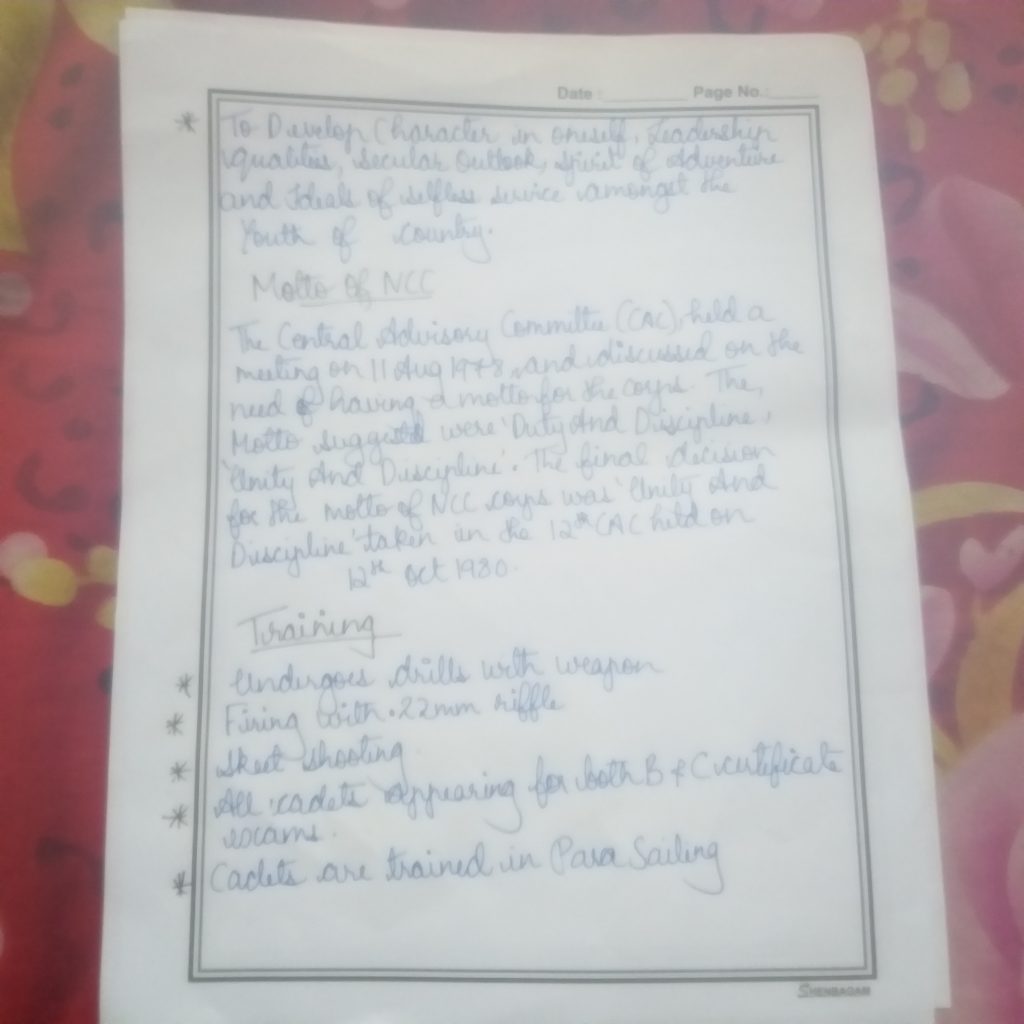 Date : Page No.
* To Develop Character in oneself, Leadership
qualities, secular Outlook, Spirit of Adventure
and Ideals of selfless service amongst the
Youth of country.
Motto Of NCC
The Central Advisory Committee (CAC), held a
meeting on 11 Aug 1978, and discussed on the
need of having a motto for the corps. The,
Motto suggested were 'Duty And Discipline',
'Unity And Discipline'. The final decision
for the motto of NCC corps was 'Unity And
Discipline' taken in the 12th CAC held on
12th Oct 1980.
Training
* Undergoes drills with weapon
* Firing with .22mm riffle
* Skeet shooting
* All cadets appearing for both B & C certificate
exams.
* Cadets are trained in Para Sailing
SHENBAGAM